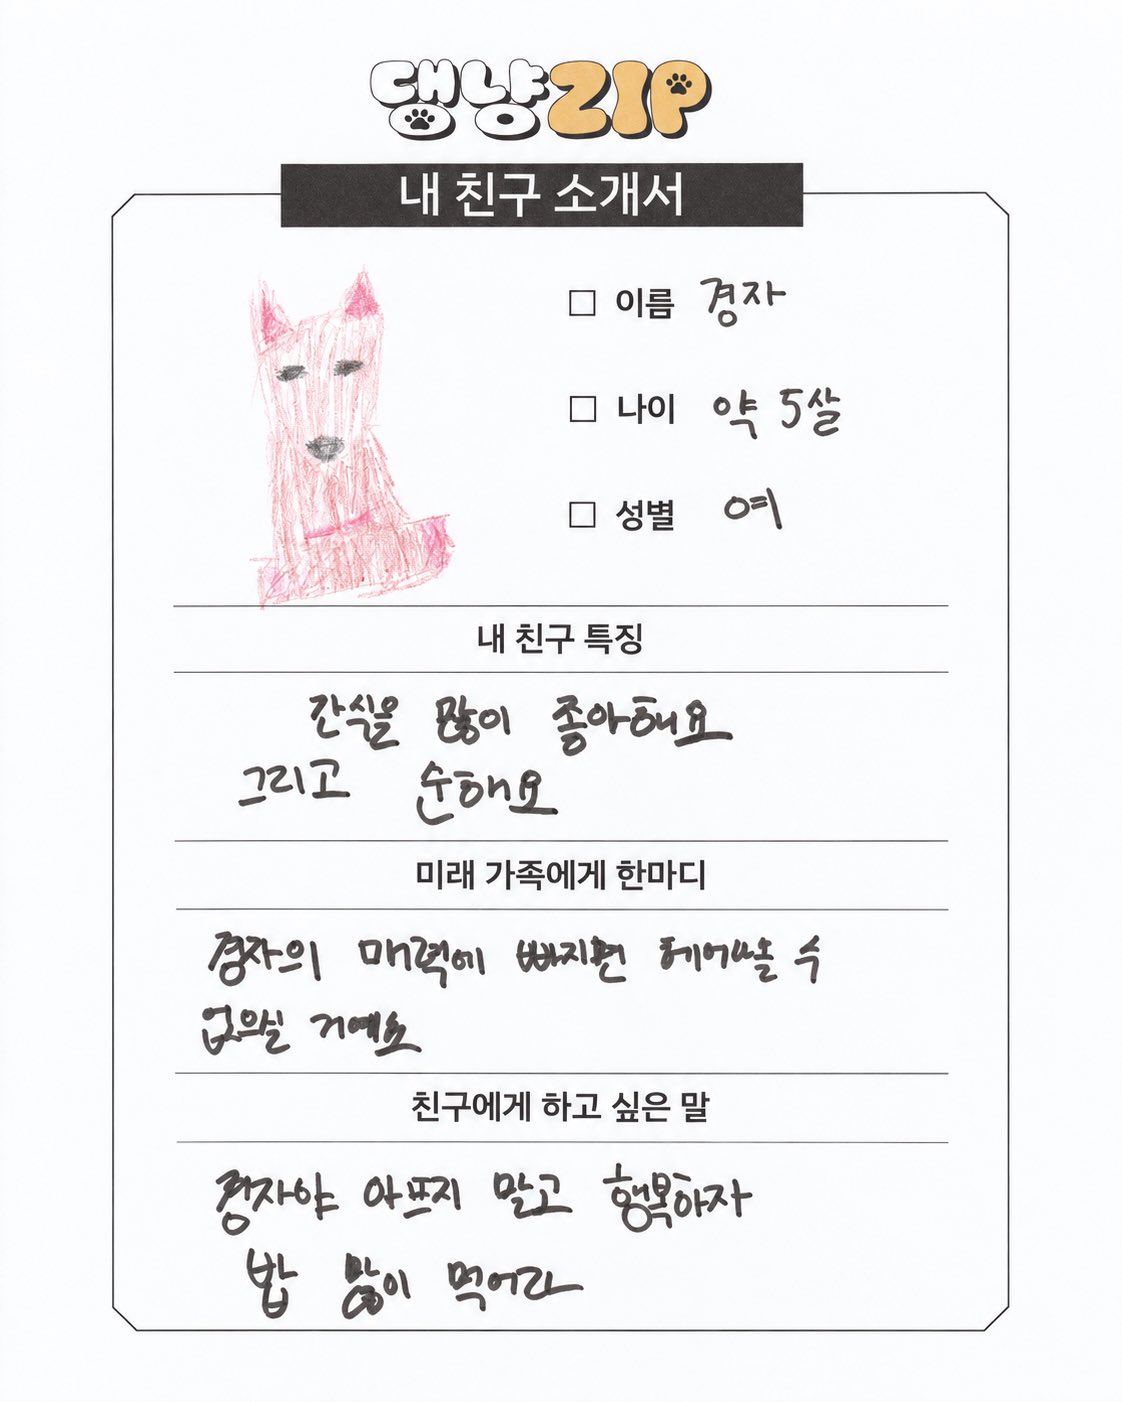 댕냥ZIP
내 친구 소개서
이름 경자
나이 약 5살
성별 여
내 친구 특징
간식을 많이 좋아해요
그리고 순해요
미래 가족에게 한마디
경자의 매력에 빠지면 헤어나올 수
없으실 거예요
친구에게 하고 싶은 말
경자야 아프지 말고 행복하자
밥 많이 먹어라